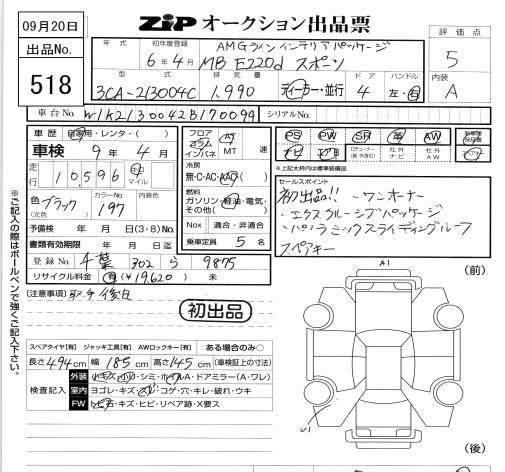 09月20日
出品No.
518
ZiP オークション出品票
評価点
5
内装
A
年式 初年度登録
6年4月
AMGラインインテリアパッケージ
MB E220d スポーツ
型式 排気量 ドア ハンドル
3CA-213004C 1,990 ディーラー・並行 4 左・右
車台No. W1K2130042B170099 シリアルNo.
車歴 自家用・レンタ・( )
車検 9年4月
走行 10,596 キロ マイル
色 (元色) ブラック カラーNo. 197 内装色
予備検 年 月 日(3・8)No.
書類有効期限 年 月 日
登録No. 千葉 302 ら 9875
リサイクル料金 有(¥19,620) 未
フロア コラム インパネ AT MT 速
冷房
無・C・AC・AAC
燃料
ガソリン・軽油・電気・その他( )
Nox 適合・非適合
乗車定員 5名
PS PW SR 革 AW
ナビ エアB 社外ナビ 社外AW
※上記太枠内は標準装備品
セールスポイント
初出品!! ・ワンオーナー
・エクスクルーシブパッケージ
・パノラミックスライディングルーフ
スペアキー
[注意事項] 後日
初出品
スペアタイヤ[有] ジャッキ工具[有] AWロックキー[有] ある場合のみ○
長さ494cm 幅185cm 高さ145cm (車検証上の寸法)
検査記入
外装 小キズ・小凹・シミ・ホイルA・ドアミラー(A・ワレ)
室内 ヨゴレ・キズ・スレ・コゲ・穴・キレ・破れ・ウキ
FW トビ石・キズ・ヒビ・リペア跡・X要ス
A1
(前)
(後)
※ご記入の際はボールペンで強くご記入下さい。